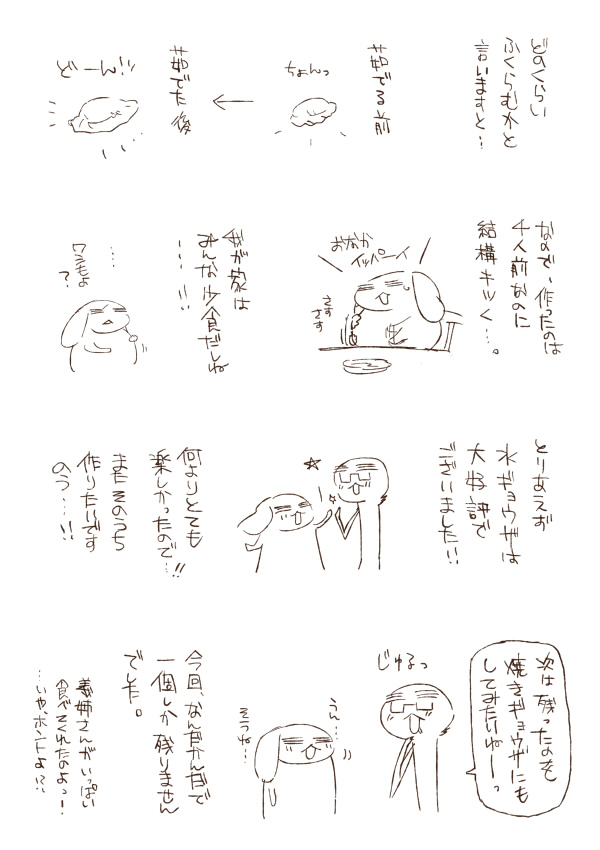 どのくらい
ふくらむかと
言いますと…
茹でる前
ちょんっ
茹でた後
どーん!!
なので、作ったのは
4人前なのに
結構キツく…。
おなか
イッパーイ
さす
さす
我が家は
みんな少食だしね
…!!
…
ワシもよ
?
とりあえず
水ギョウザは
大好評で
ございました!!
何よりとても
楽しかったので…!!
またそのうち
作りたいです
のう…!!
次は残ったのを
焼きギョウザにも
してみたいねーっ
じゅるっ
うん…
そうね…
今回、なんだかんだで
一個しか残りません
でした。
義姉さんがいっぱい
食べてくれたのよっ!
…いや、ホントよ!?